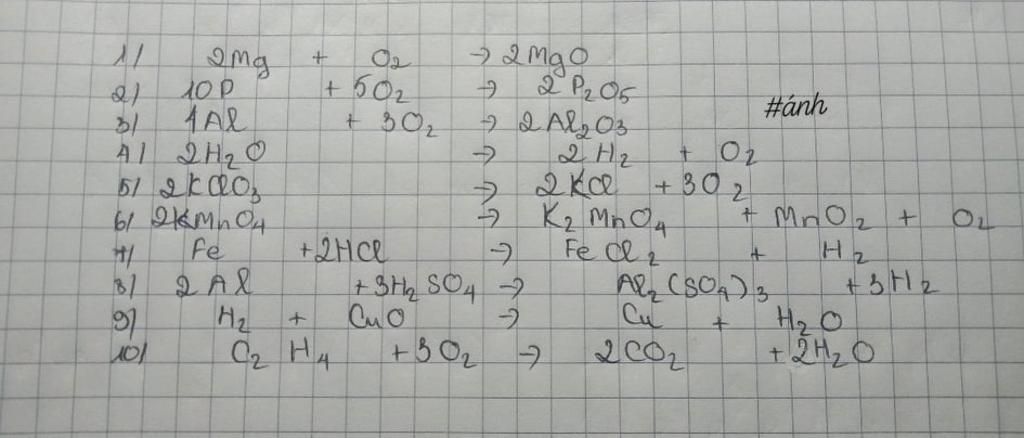 1) 2Mg + O₂ → 2MgO
2) 10P + 5O₂ → 2P₂O₅
#ánh
3) 4Al + 3O₂ → 2Al₂O₃
4) 2H₂O → 2H₂ + O₂
5) 2KClO₃ → 2KCl + 3O₂
6) 2KMnO₄ → K₂MnO₄ + MnO₂ + O₂
7) Fe + 2HCl → FeCl₂ + H₂
8) 2Al + 3H₂SO₄ → Al₂(SO₄)₃ + 3H₂
9) H₂ + CuO → Cu + H₂O
10) C₂H₄ + 3O₂ → 2CO₂ + 2H₂O